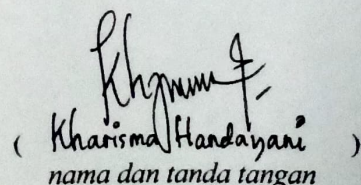 ( Kharisma Handayani )
nama dan tanda tangan